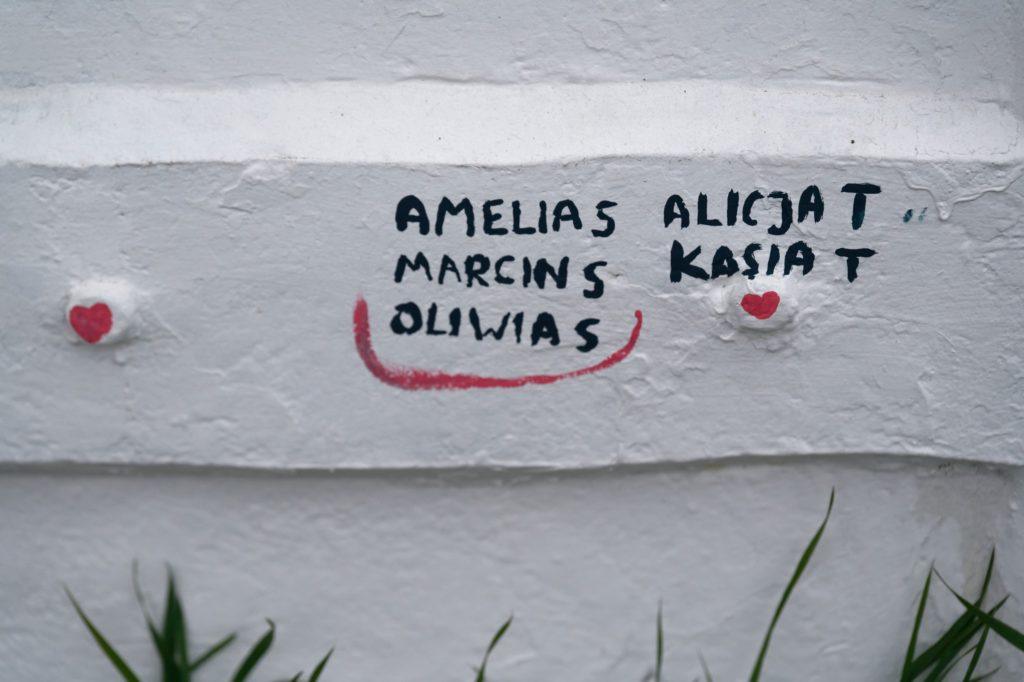 AMELIA S
MARCIN S
OLIWIA S
ALICJA T
KASIA T